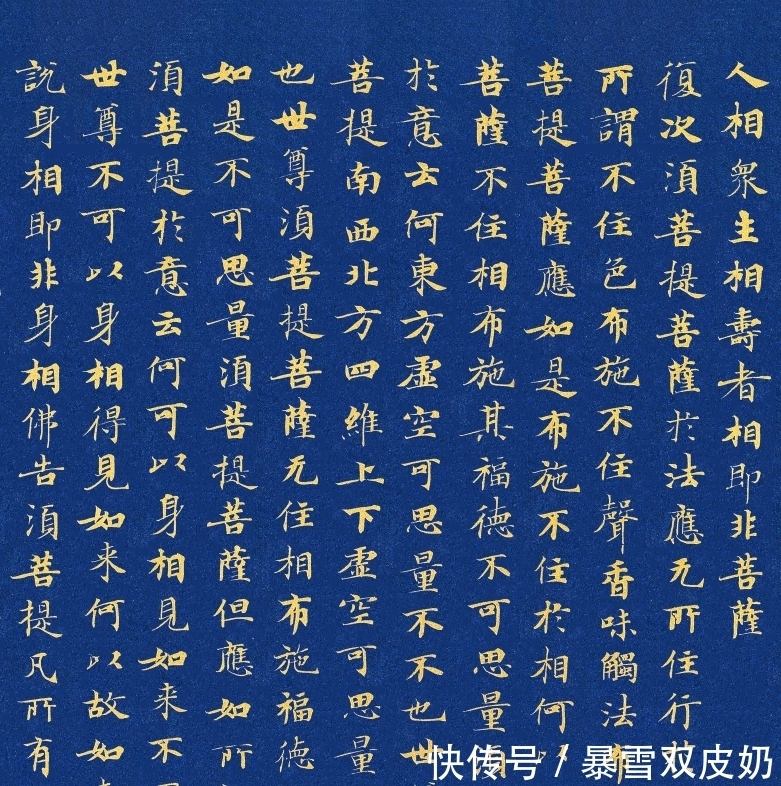 人相衆生相壽者相即非菩薩
復次湏菩提菩薩於法應无所住行
所謂不住色布施不住聲香味觸法
菩提菩薩應如是布施不住於相何
菩薩不住相布施其福德不可思量
於意云何東方虛空可思量不不也世
菩提南西北方四維上下虛空可思量
也世尊湏菩提菩薩无住相布施福德
如是不可思量湏菩提菩薩但應如所
湏菩提於意云何可以身相見如来不
世尊不可以身相得見如来何以故如
說身相即非身相佛告湏菩提凡所有
快传号/暴雪双皮奶